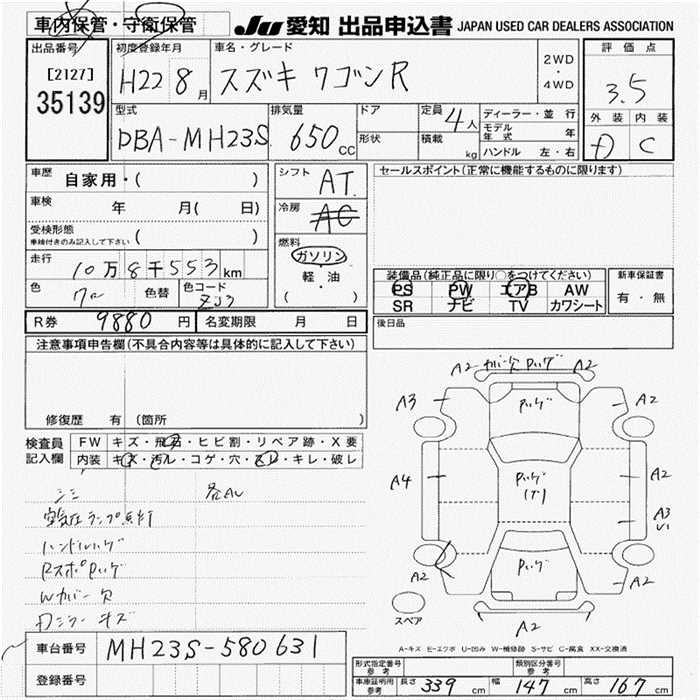 車内保管・守衛保管
JU 愛知 出品申込書 JAPAN USED CAR DEALERS ASSOCIATION
出品番号
[2127]
35139
初度登録年月
H22 8月
車名・グレード
スズキ ワゴンR
2WD
・
4WD
評価点
3.5
外装 内装
D C
型式
DBA-MH23S
排気量
650cc
ドア
形状
定員 4人
積載 kg
ディーラー・並行
モデル年式 年
ハンドル 左・右
車歴 自家用・( )
車検 年 月( 日)
受検形態
車検付きのみ記入して下さい ( )
走行 10万8千553km
色 色替 色コード
ZJ3
シフト AT
冷房 AC
燃料
ガソリン
・
軽・油
( ・ )
セールスポイント(正常に機能するものに限ります)
装備品(純正品に限り〇をつけてください)
PS PW エアB AW
SR ナビ TV カワシート
新車保証書
有・無
R券 9880円 名変期限 月 日
後日品
注意事項申告欄(不具合内容等は具体的に記入して下さい)
修復歴 有 (箇所 )
検査員記入欄
FW キズ・飛石・ヒビ割・リペア跡・X要
内装 キズ・汚ル・コゲ・穴・スレ・キレ・破レ
シミ
空気圧ランプ点灯
Wカバー欠
キズ
A2 カバー欠 A2
A3 A2
A4 A2
A3
A2 A2
A2
スペア
A-キズ E-エクボ U-凹み W-補修跡 S-サビ C-腐食 XX-交換済
車台番号 MH23S-580631
登録番号
形式指定番号 参考
類別区分番号 参考
車庫証明用 参考 長さ 339cm 幅 147cm 高さ 167cm